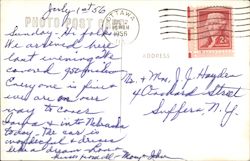 July 1st 56
PHOTO POST CARD
Sunday - Hi folks
We arrived here
last evening. We
covered 950 miles
Everyone is fine
and are on our
way to cover
Iowa & into Nebraska
today. The car is
wonderful & drives
like a dream
Mary & John
OTTAWA
1956
ADDRESS
Mr. & Mrs. J. J. Hayden
4 Orchard Street
Suffern, N.Y.
2¢